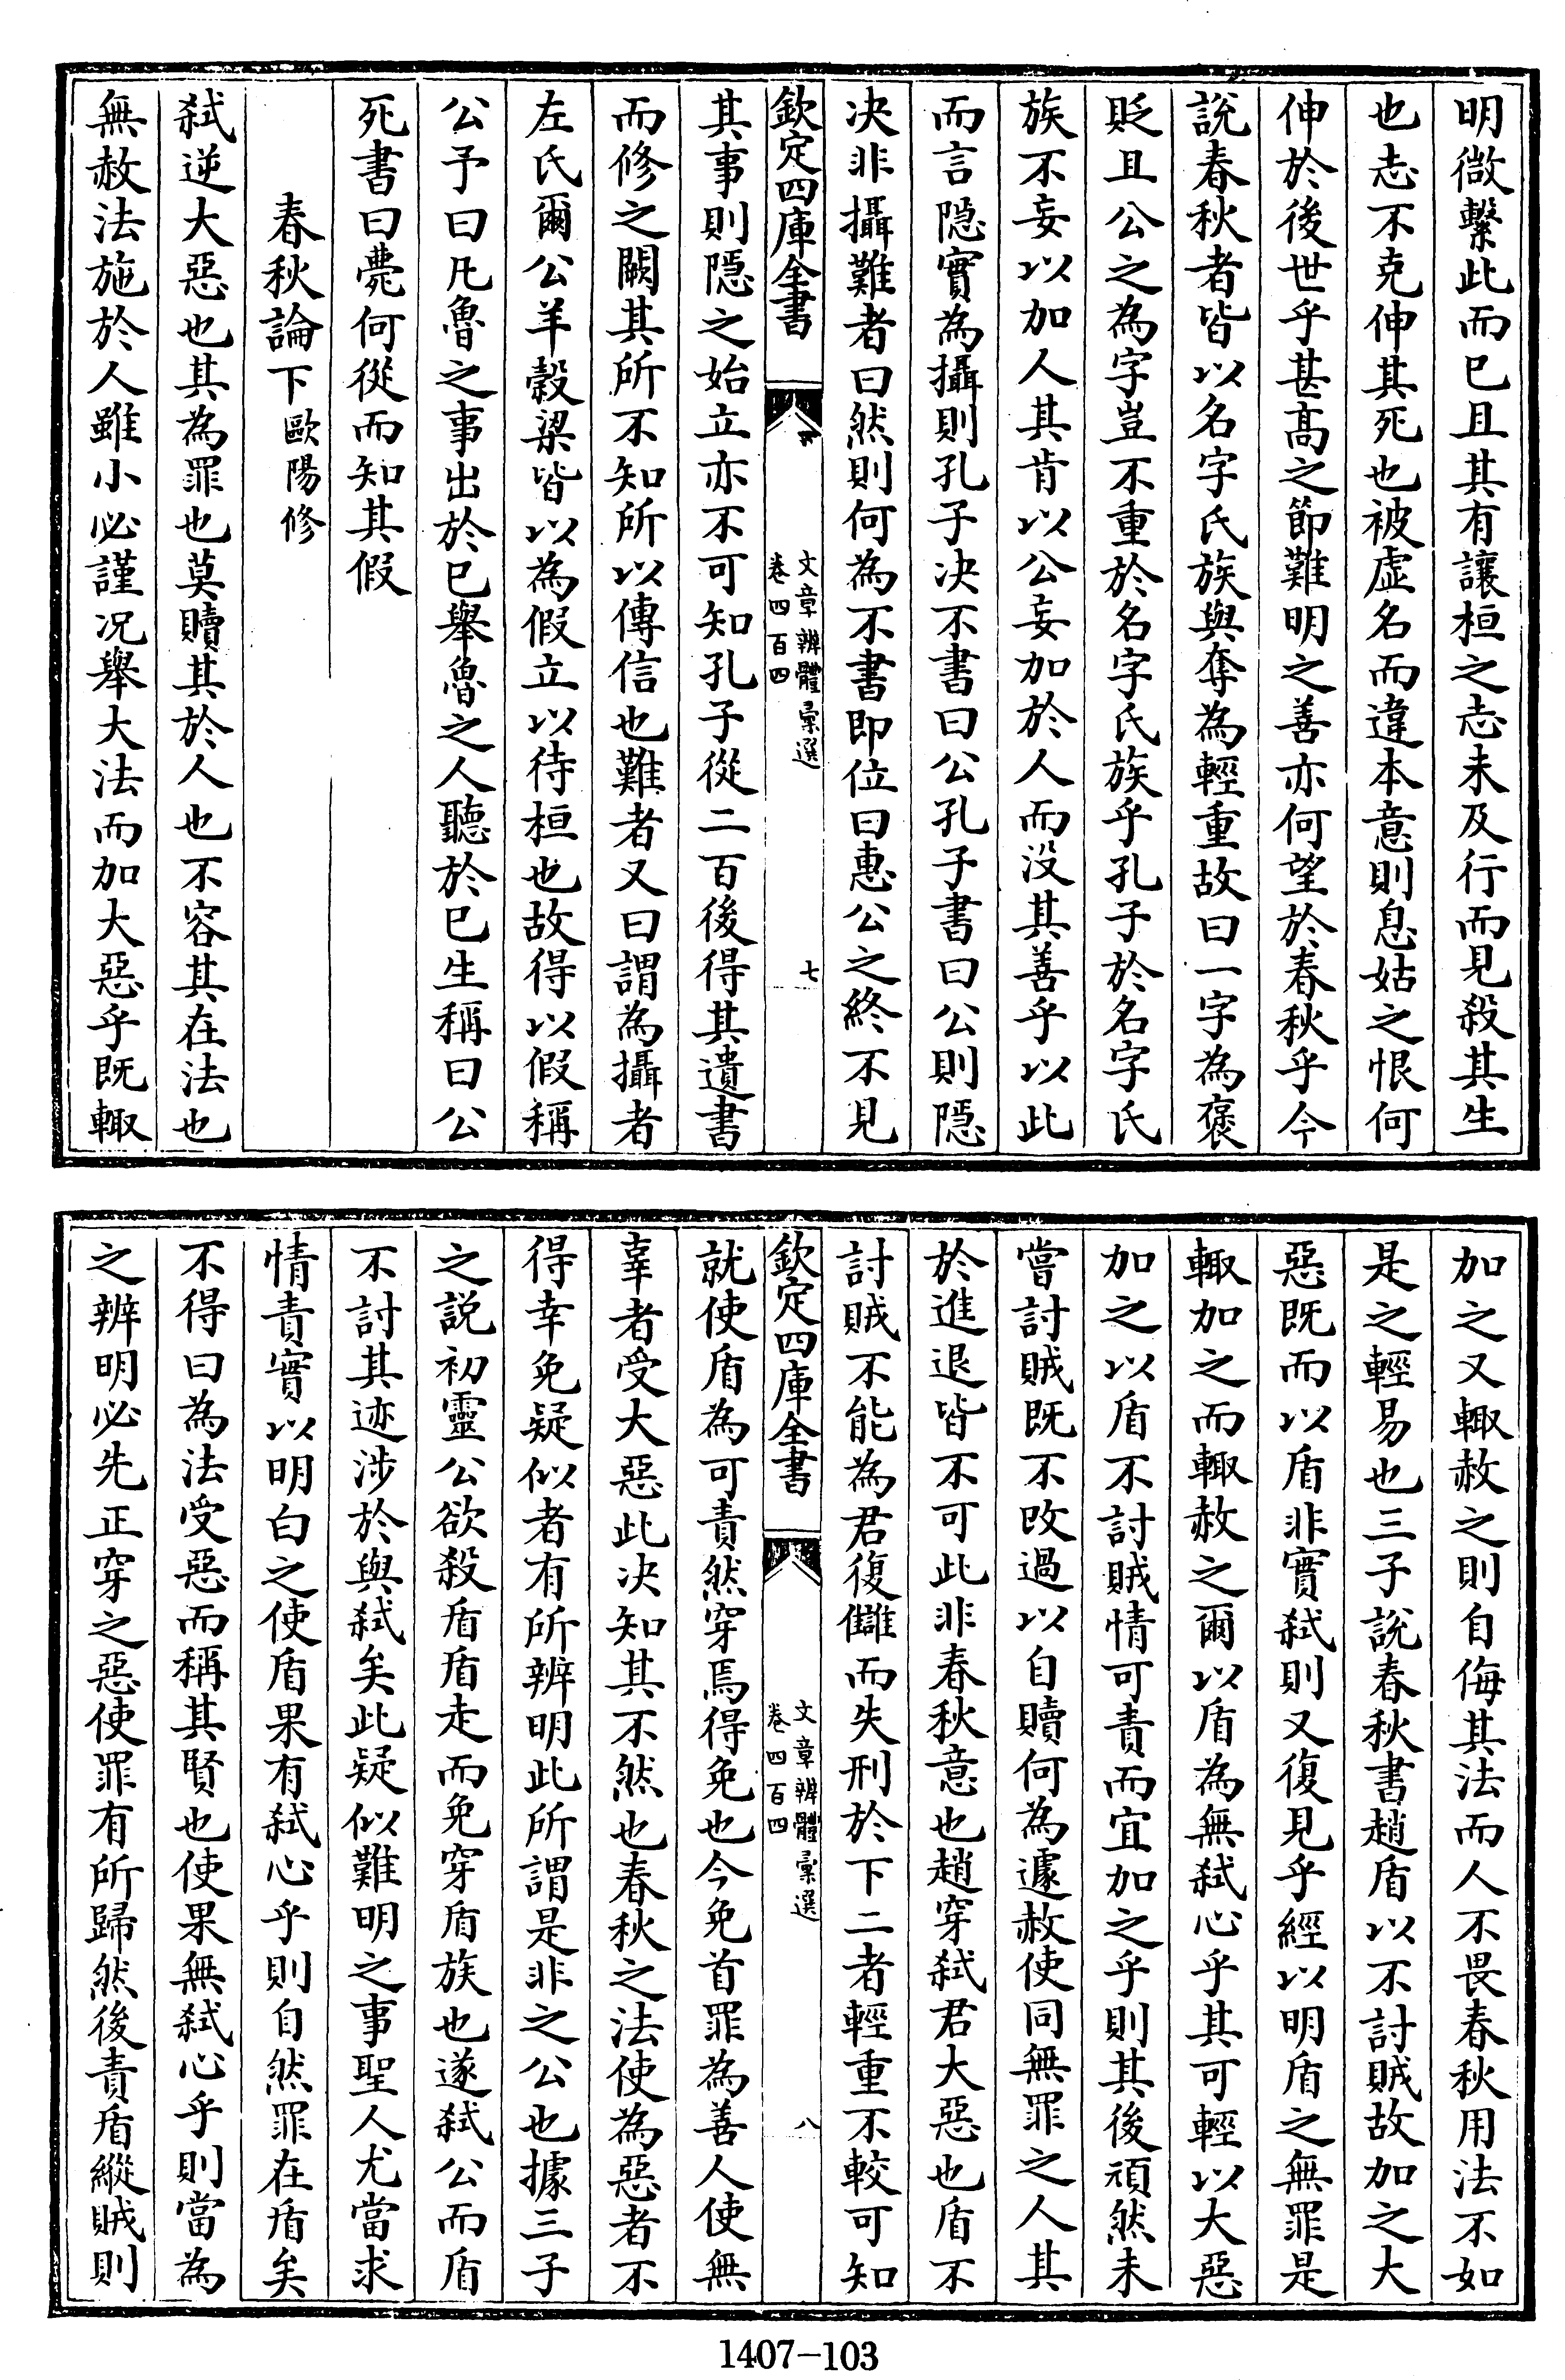 明微繫此而已且其有讓桓之志未及行而見殺其生
也志不克伸其死也被虛名而違本意則息姑之恨何
伸於後世乎甚髙之節難明之善亦何望於春秋乎今
說春秋者皆以名字氏族與奪為輕重故曰一字為褒
貶且公之為字豈不重於名字氏族乎孔子於名字氏
族不妄以加人其肯以公妄加於人而沒其善乎以此
而言隱實為攝則孔子决不書曰公孔子書曰公則隱
决非攝難者曰然則何為不書即位曰惠公之終不見
欽定四庫全書
文章辨體彙選
卷四百四
七
其事則隱之始立亦不可知孔子從二百後得其遺書
而修之闕其所不知所以傳信也難者又曰謂為攝者
左氏爾公羊穀梁皆以為假立以待桓也故得以假稱
公予曰凡魯之事出於已舉魯之人聽於已生稱曰公
死書曰薨何從而知其假
春秋論下歐陽修
弑逆大惡也其為罪也莫贖其於人也不容其在法也
無赦法施於人雖小必謹况舉大法而加大惡乎既輙
加之又輙赦之則自侮其法而人不畏春秋用法不如
是之輕易也三子說春秋書趙盾以不討賊故加之大
惡既而以盾非實弑則又復見乎經以明盾之無罪是
輙加之而輙赦之爾以盾為無弑心乎其可輕以大惡
加之以盾不討賊情可責而宜加之乎則其後頑然未
嘗討賊既不改過以自贖何為遽赦使同無罪之人其
於進退皆不可此非春秋意也趙穿弑君大惡也盾不
討賊不能為君復讎而失刑於下二者輕重不較可知
欽定四庫全書
文章辨體彙選
卷四百四
八
就使盾為可責然穿焉得免也今免首罪為善人使無
辜者受大惡此决知其不然也春秋之法使為惡者不
得幸免疑似者有所辨明此所謂是非之公也據三子
之說初靈公欲殺盾盾走而免穿盾族也遂弑公而盾
不討其迹涉於與弑矣此疑似難明之事聖人尤當求
情責實以明白之使盾果有弑心乎則自然罪在盾矣
不得曰為法受惡而稱其賢也使果無弑心乎則當為
之辨明必先正穿之惡使罪有所歸然後責盾縱賊則
1407-103